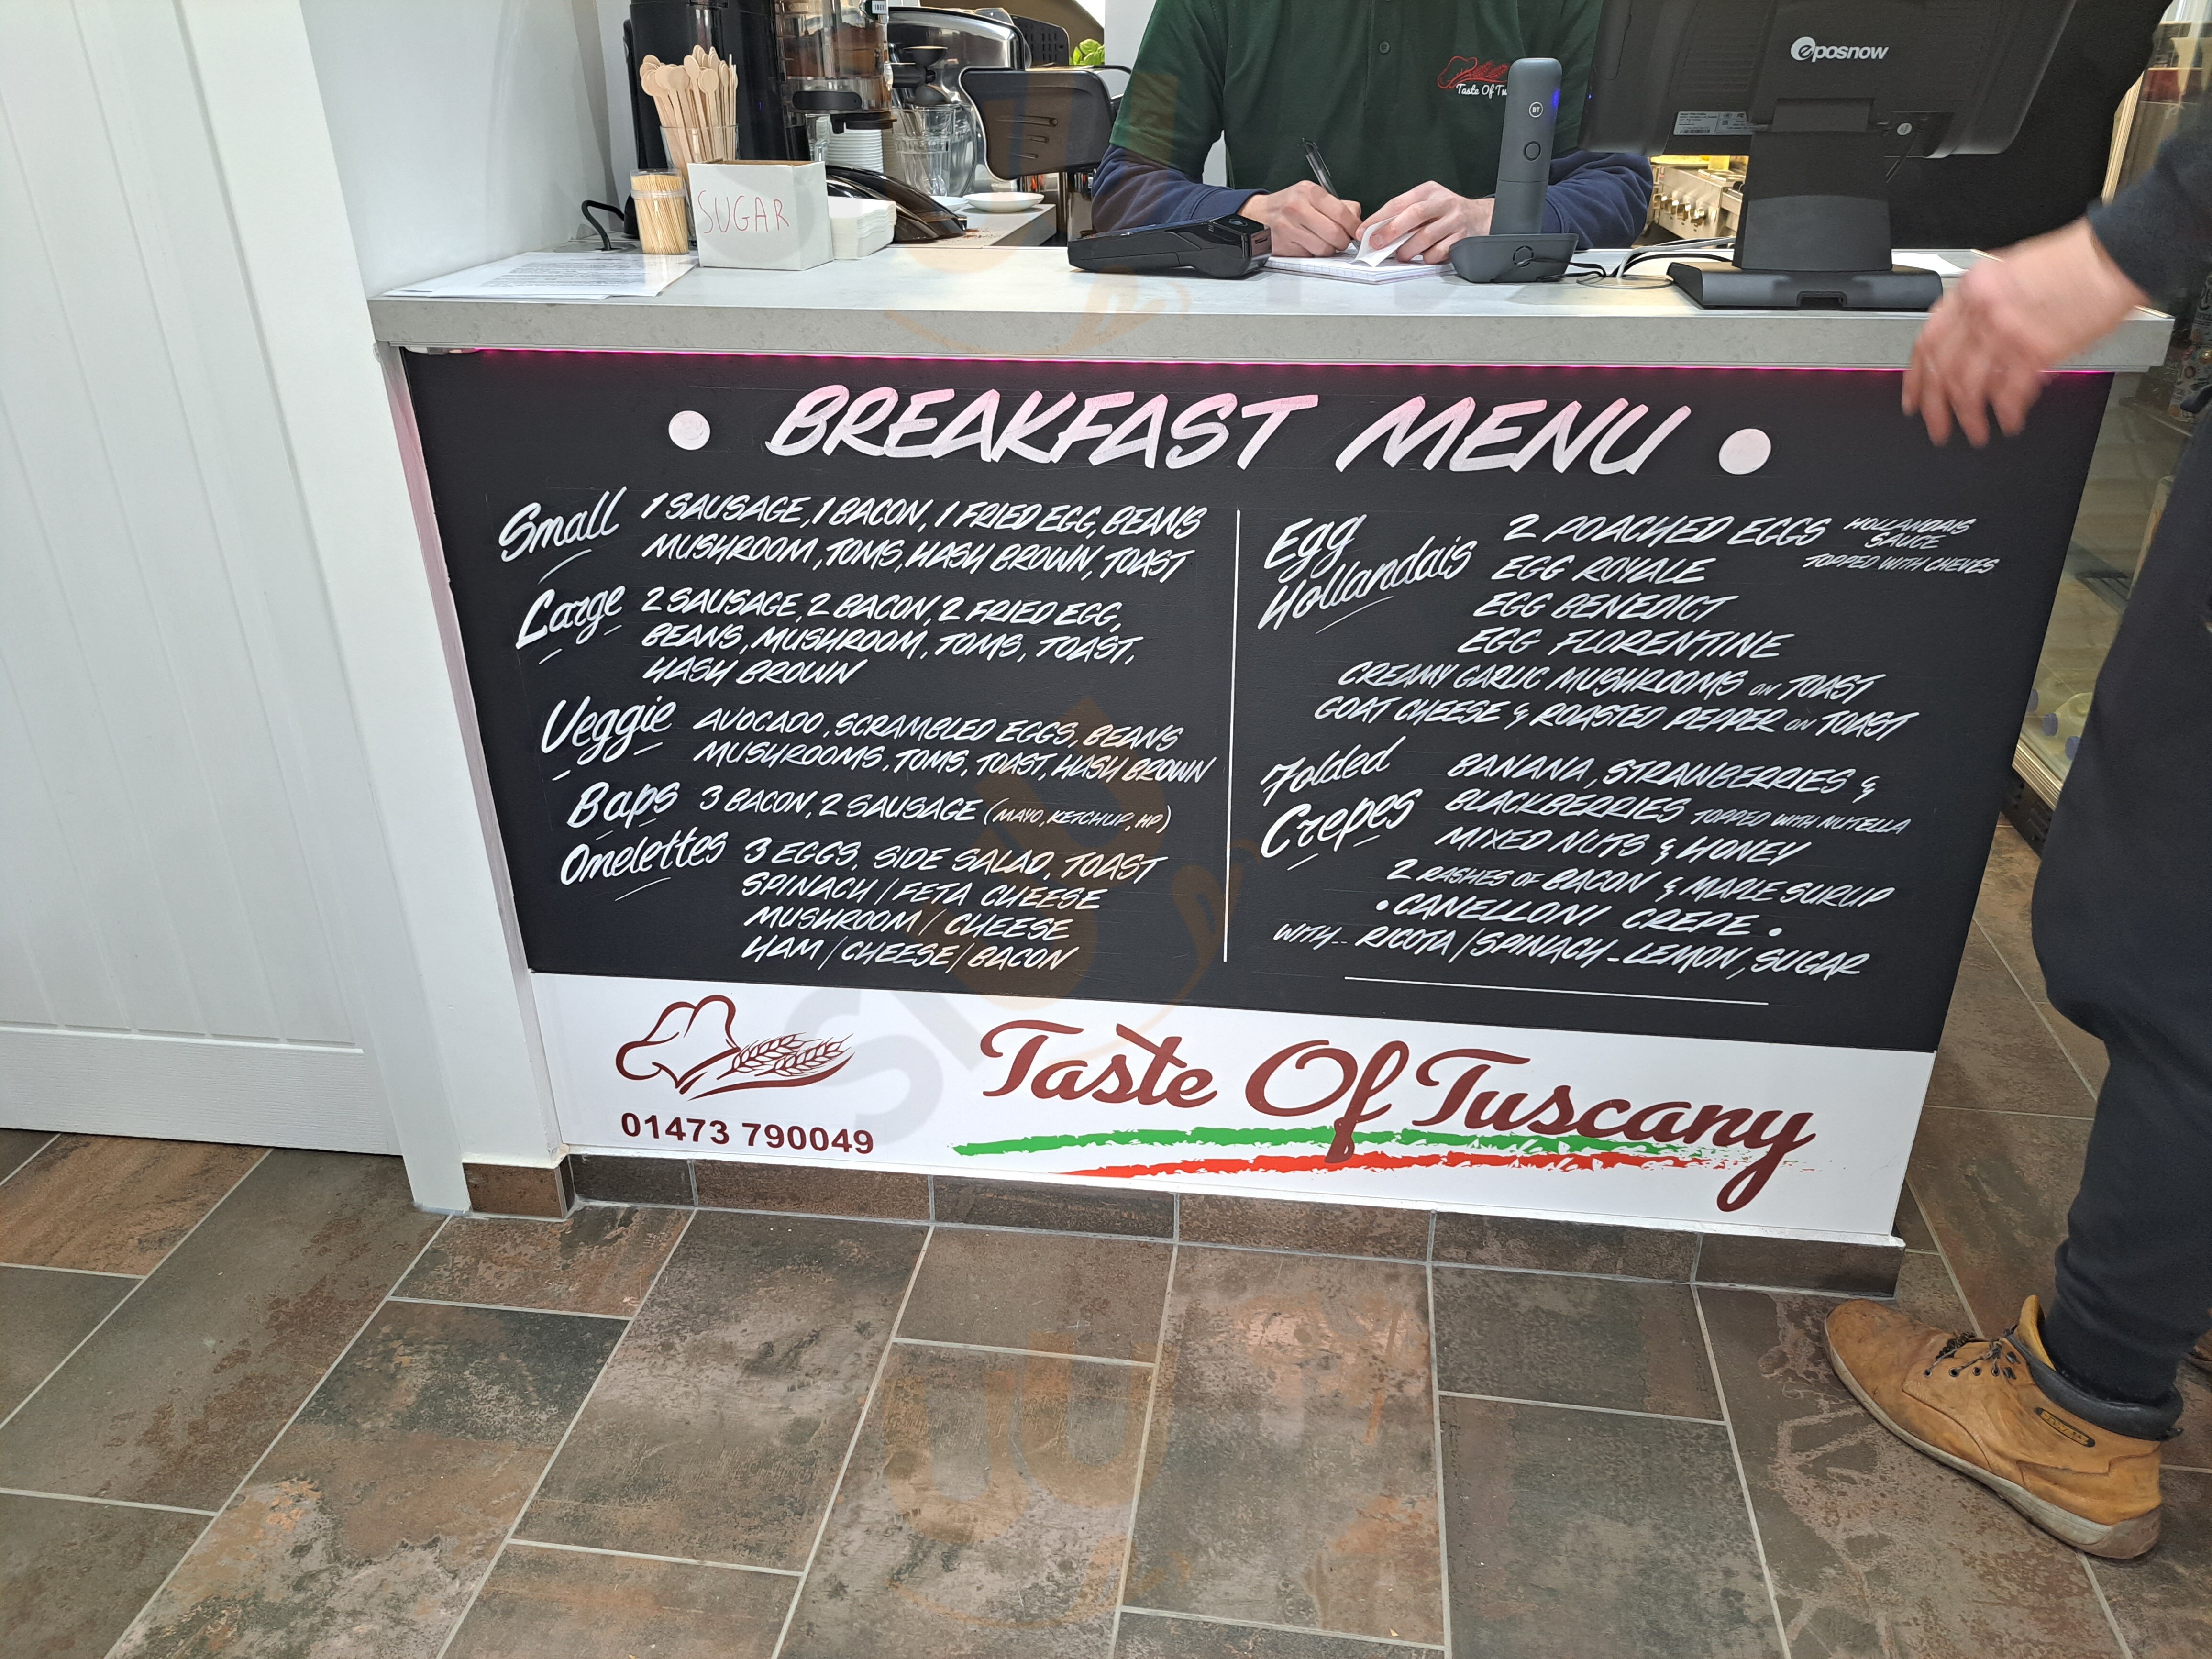 eposnow
Taste Of Tu
BT
SUGAR
• BREAKFAST MENU •
Small 1 SAUSAGE, 1 BACON, 1 FRIED EGG, BEANS
MUSHROOM, TOMS, HASH BROWN, TOAST
Large 2 SAUSAGE, 2 BACON, 2 FRIED EGG,
BEANS, MUSHROOM, TOMS, TOAST,
HASH BROWN
Veggie AVOCADO, SCRAMBLED EGGS, BEANS
MUSHROOMS, TOMS, TOAST, HASH BROWN
Baps 3 BACON, 2 SAUSAGE (MAYO, KETCHUP, HP)
Omelettes 3 EGGS, SIDE SALAD, TOAST
SPINACH / FETA CHEESE
MUSHROOM / CHEESE
HAM / CHEESE / BACON
Egg Hollandais 2 POACHED EGGS HOLLANDAIS SAUCE
TOPPED WITH CHEVES
EGG ROYALE
EGG BENEDICT
EGG FLORENTINE
CREAMY GARLIC MUSHROOMS ON TOAST
GOAT CHEESE & ROASTED PEPPER ON TOAST
Folded Crepes BANANA, STRAWBERRIES &
BLACKBERRIES TOPPED WITH NUTELLA
MIXED NUTS & HONEY
2 RASHES OF BACON & MAPLE SURUP
• CANELLONI CREPE •
WITH-- RICOTA / SPINACH - LEMON, SUGAR
Taste Of Tuscany
01473 790049